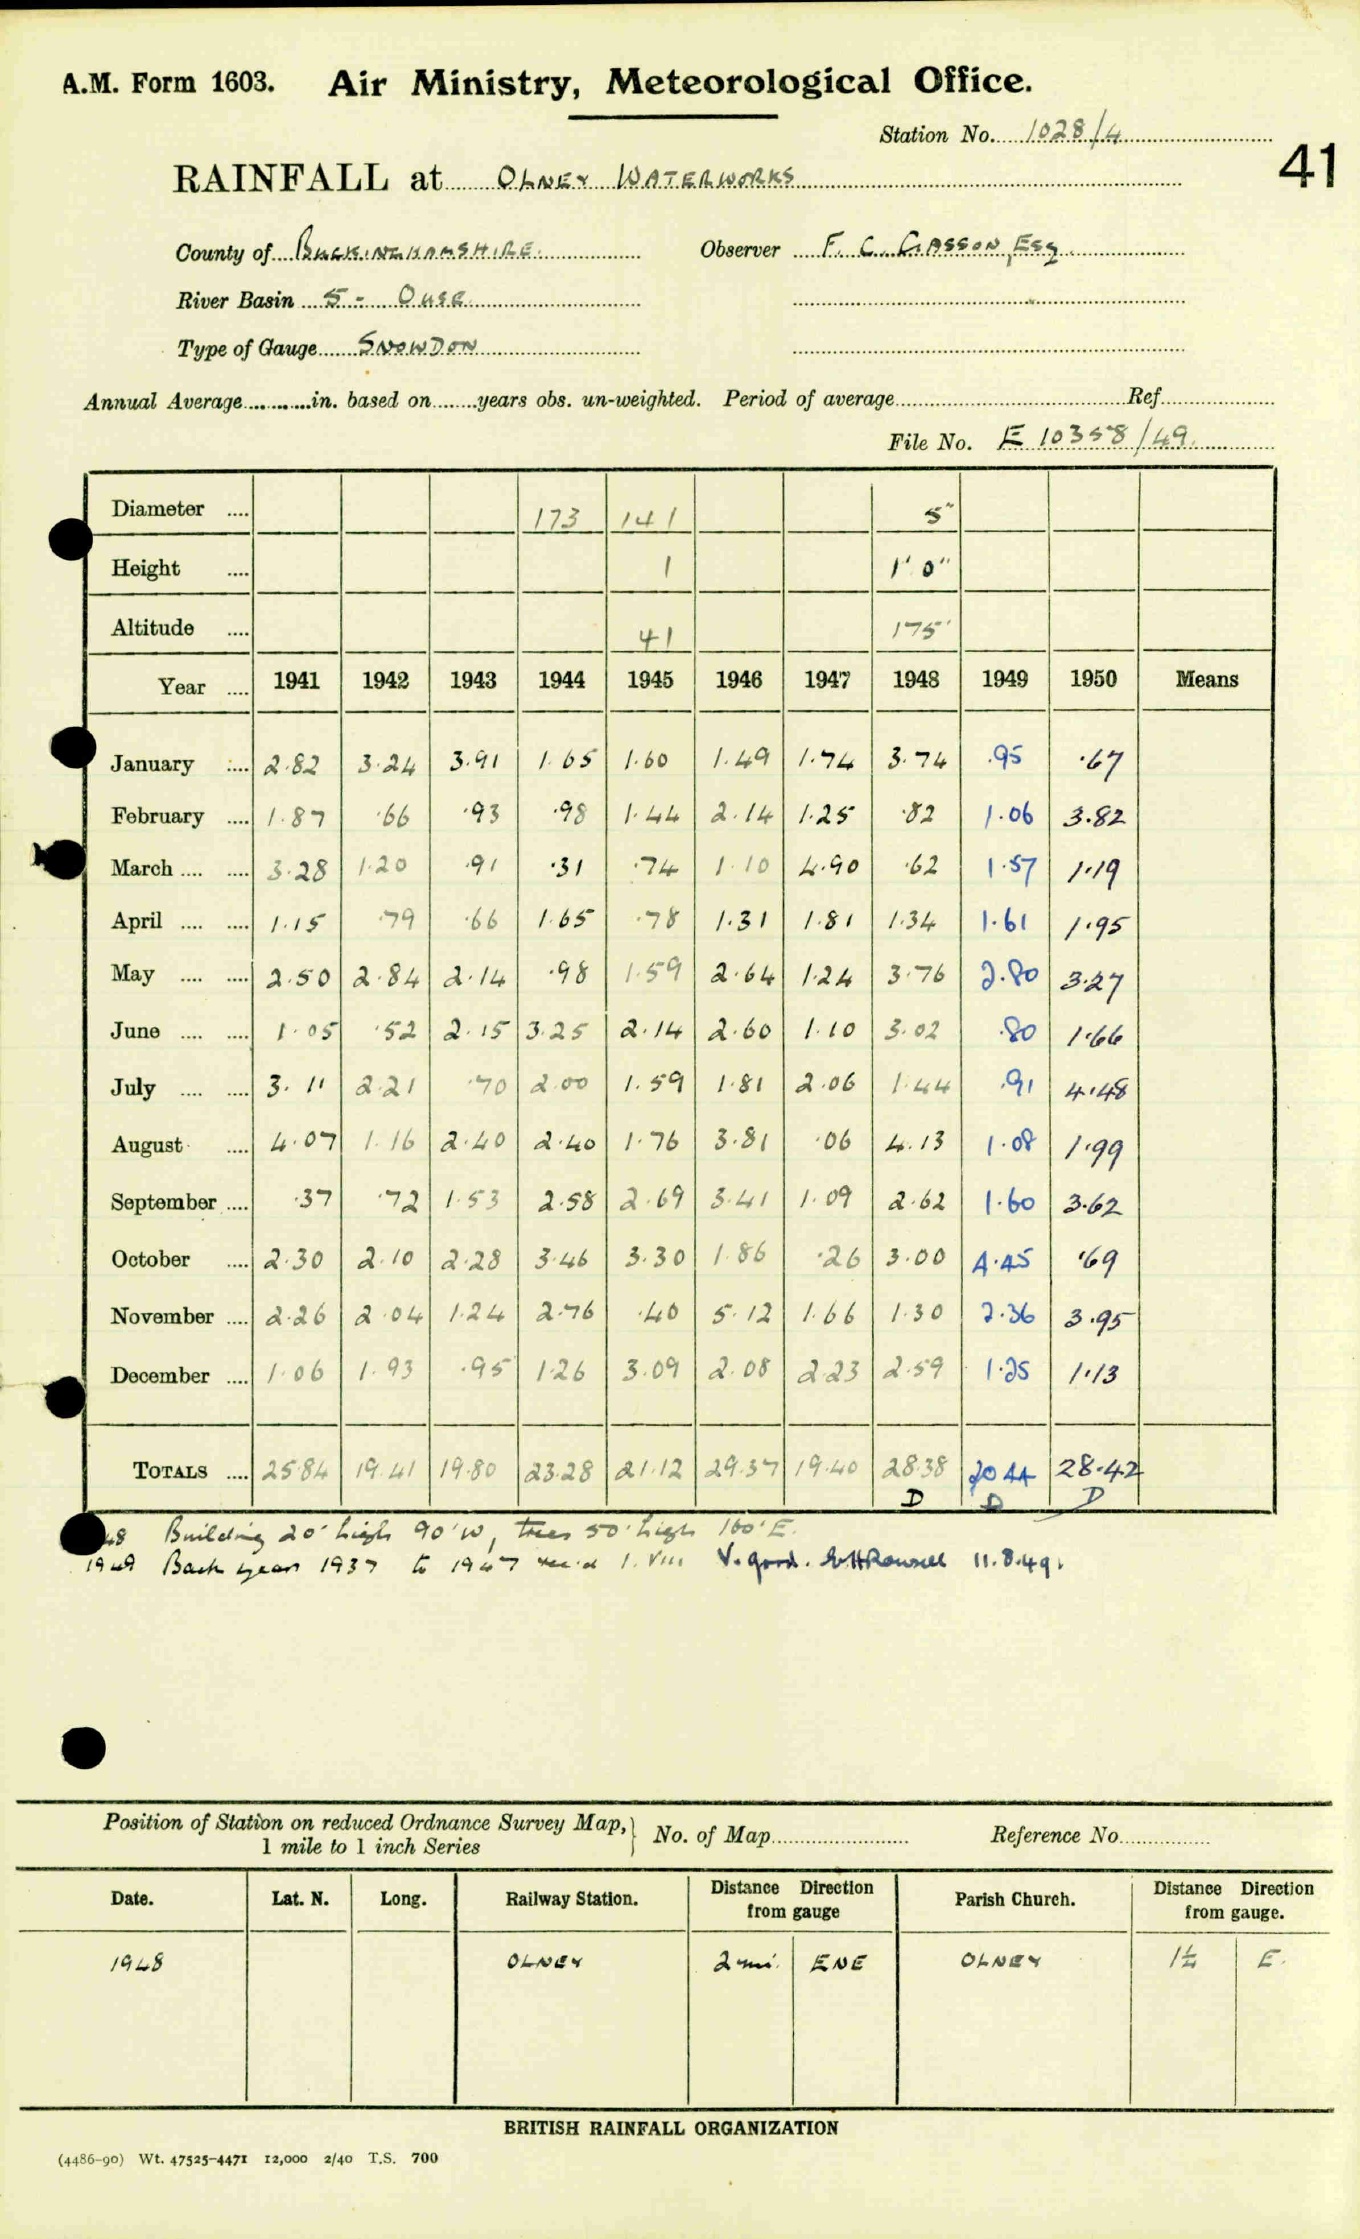 A.M. Form 1603. Air Ministry, Meteorological Office.
Station No. 1028/4
41
RAINFALL at OLNEY WATERWORKS
County of BUCKINGHAMSHIRE. Observer F. C. GASSON, Esq.
River Basin 5 - OUSE
Type of Gauge SNOWDON
Annual Average in. based on years obs. un-weighted. Period of average Ref
File No. E 10358/49.
Diameter 173 141 5"
Height 1 1' 0"
Altitude 41 175'
Year 1941 1942 1943 1944 1945 1946 1947 1948 1949 1950 Means
January 2.82 3.24 3.91 1.65 1.60 1.49 1.74 3.74 .95 .67
February 1.87 .66 .93 .98 1.44 2.14 1.25 .82 1.06 3.82
March 3.28 1.20 .91 .31 .74 1.10 4.90 .62 1.57 1.19
April 1.15 .79 .66 1.65 .78 1.31 1.81 1.34 1.61 1.95
May 2.50 2.84 2.14 .98 1.59 2.64 1.24 3.76 2.80 3.27
June 1.05 .52 2.15 3.25 2.14 2.60 1.10 3.02 .80 1.66
July 3.11 2.21 .70 2.00 1.59 1.81 2.06 1.44 .91 4.48
August 4.07 1.16 2.40 2.40 1.76 3.81 .06 4.13 1.08 1.99
September .37 .72 1.53 2.58 2.69 3.41 1.09 2.62 1.60 3.62
October 2.30 2.10 2.28 3.46 3.30 1.86 .26 3.00 4.45 .69
November 2.26 2.04 1.24 2.76 .40 5.12 1.66 1.30 2.36 3.95
December 1.06 1.93 .95 1.26 3.09 2.08 2.23 2.59 1.25 1.13
TOTALS 25.84 19.41 19.80 23.28 21.12 29.37 19.40 28.38 20.44 28.42
D D D
48 Building 20' high 90' W, trees 50' high 160' E.
1949 Back years 1937 to 1947 rec'd 1.VIII V. good. 11.8.49.
Position of Station on reduced Ordnance Survey Map, No. of Map Reference No.
1 mile to 1 inch Series
Date. Lat. N. Long. Railway Station. Distance Direction from gauge Parish Church. Distance Direction from gauge.
1948 OLNEY 2 mi. ENE OLNEY 1¼ E.
BRITISH RAINFALL ORGANIZATION
(4486-90) Wt. 47525-4471 12,000 2/40 T.S. 700